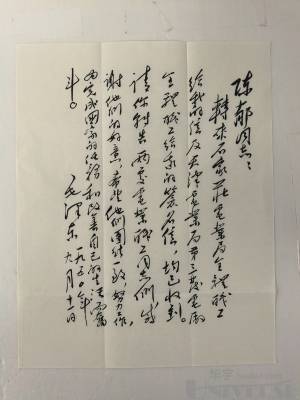 陈郁同志：
转来石家庄电业局全理职工
给我的信及天津电业局第三发电厂
全理职工给我的签名信，均已收到。
请你转告两处电业职工同志们，感
谢他们的好意，希望他们团结一致，努力工作，
为完成国家的任务和改善自己的生活而奋
斗。
毛泽东
一九五〇年
六月十一日